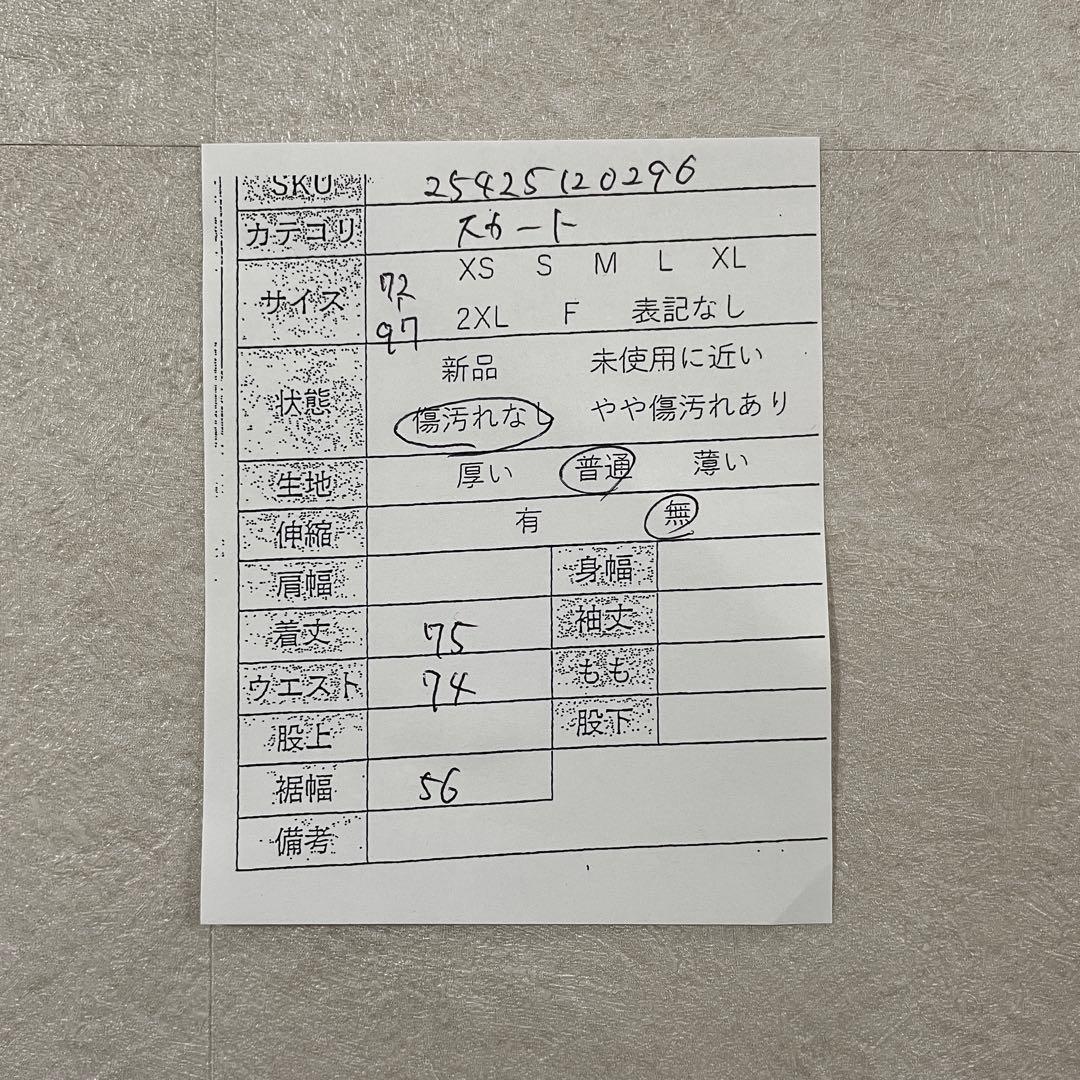 SKU 25425120296
カテゴリ スカート
サイズ 72 XS S M L XL
97 2XL F 表記なし
状態 新品 未使用に近い
傷汚れなし やや傷汚れあり
生地 厚い 普通 薄い
伸縮 有 無
肩幅 身幅
着丈 75 袖丈
ウエスト 74 もも
股上 股下
裾幅 56
備考